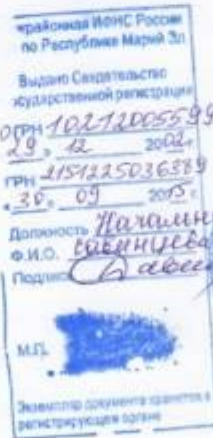 жрайонная ИФНС России
по Республике Марий Эл
Выдано Свидетельство
осударственной регистрации
ОГРН 1021200559
29 » 12 2002
ГРН 2151225036389
« 30 » 09 2015 г.
Должность Начальн
Ф.И.О. Савинцева
Подпись
М.П.
Экземпляр документа хранится в
регистрирующем органе